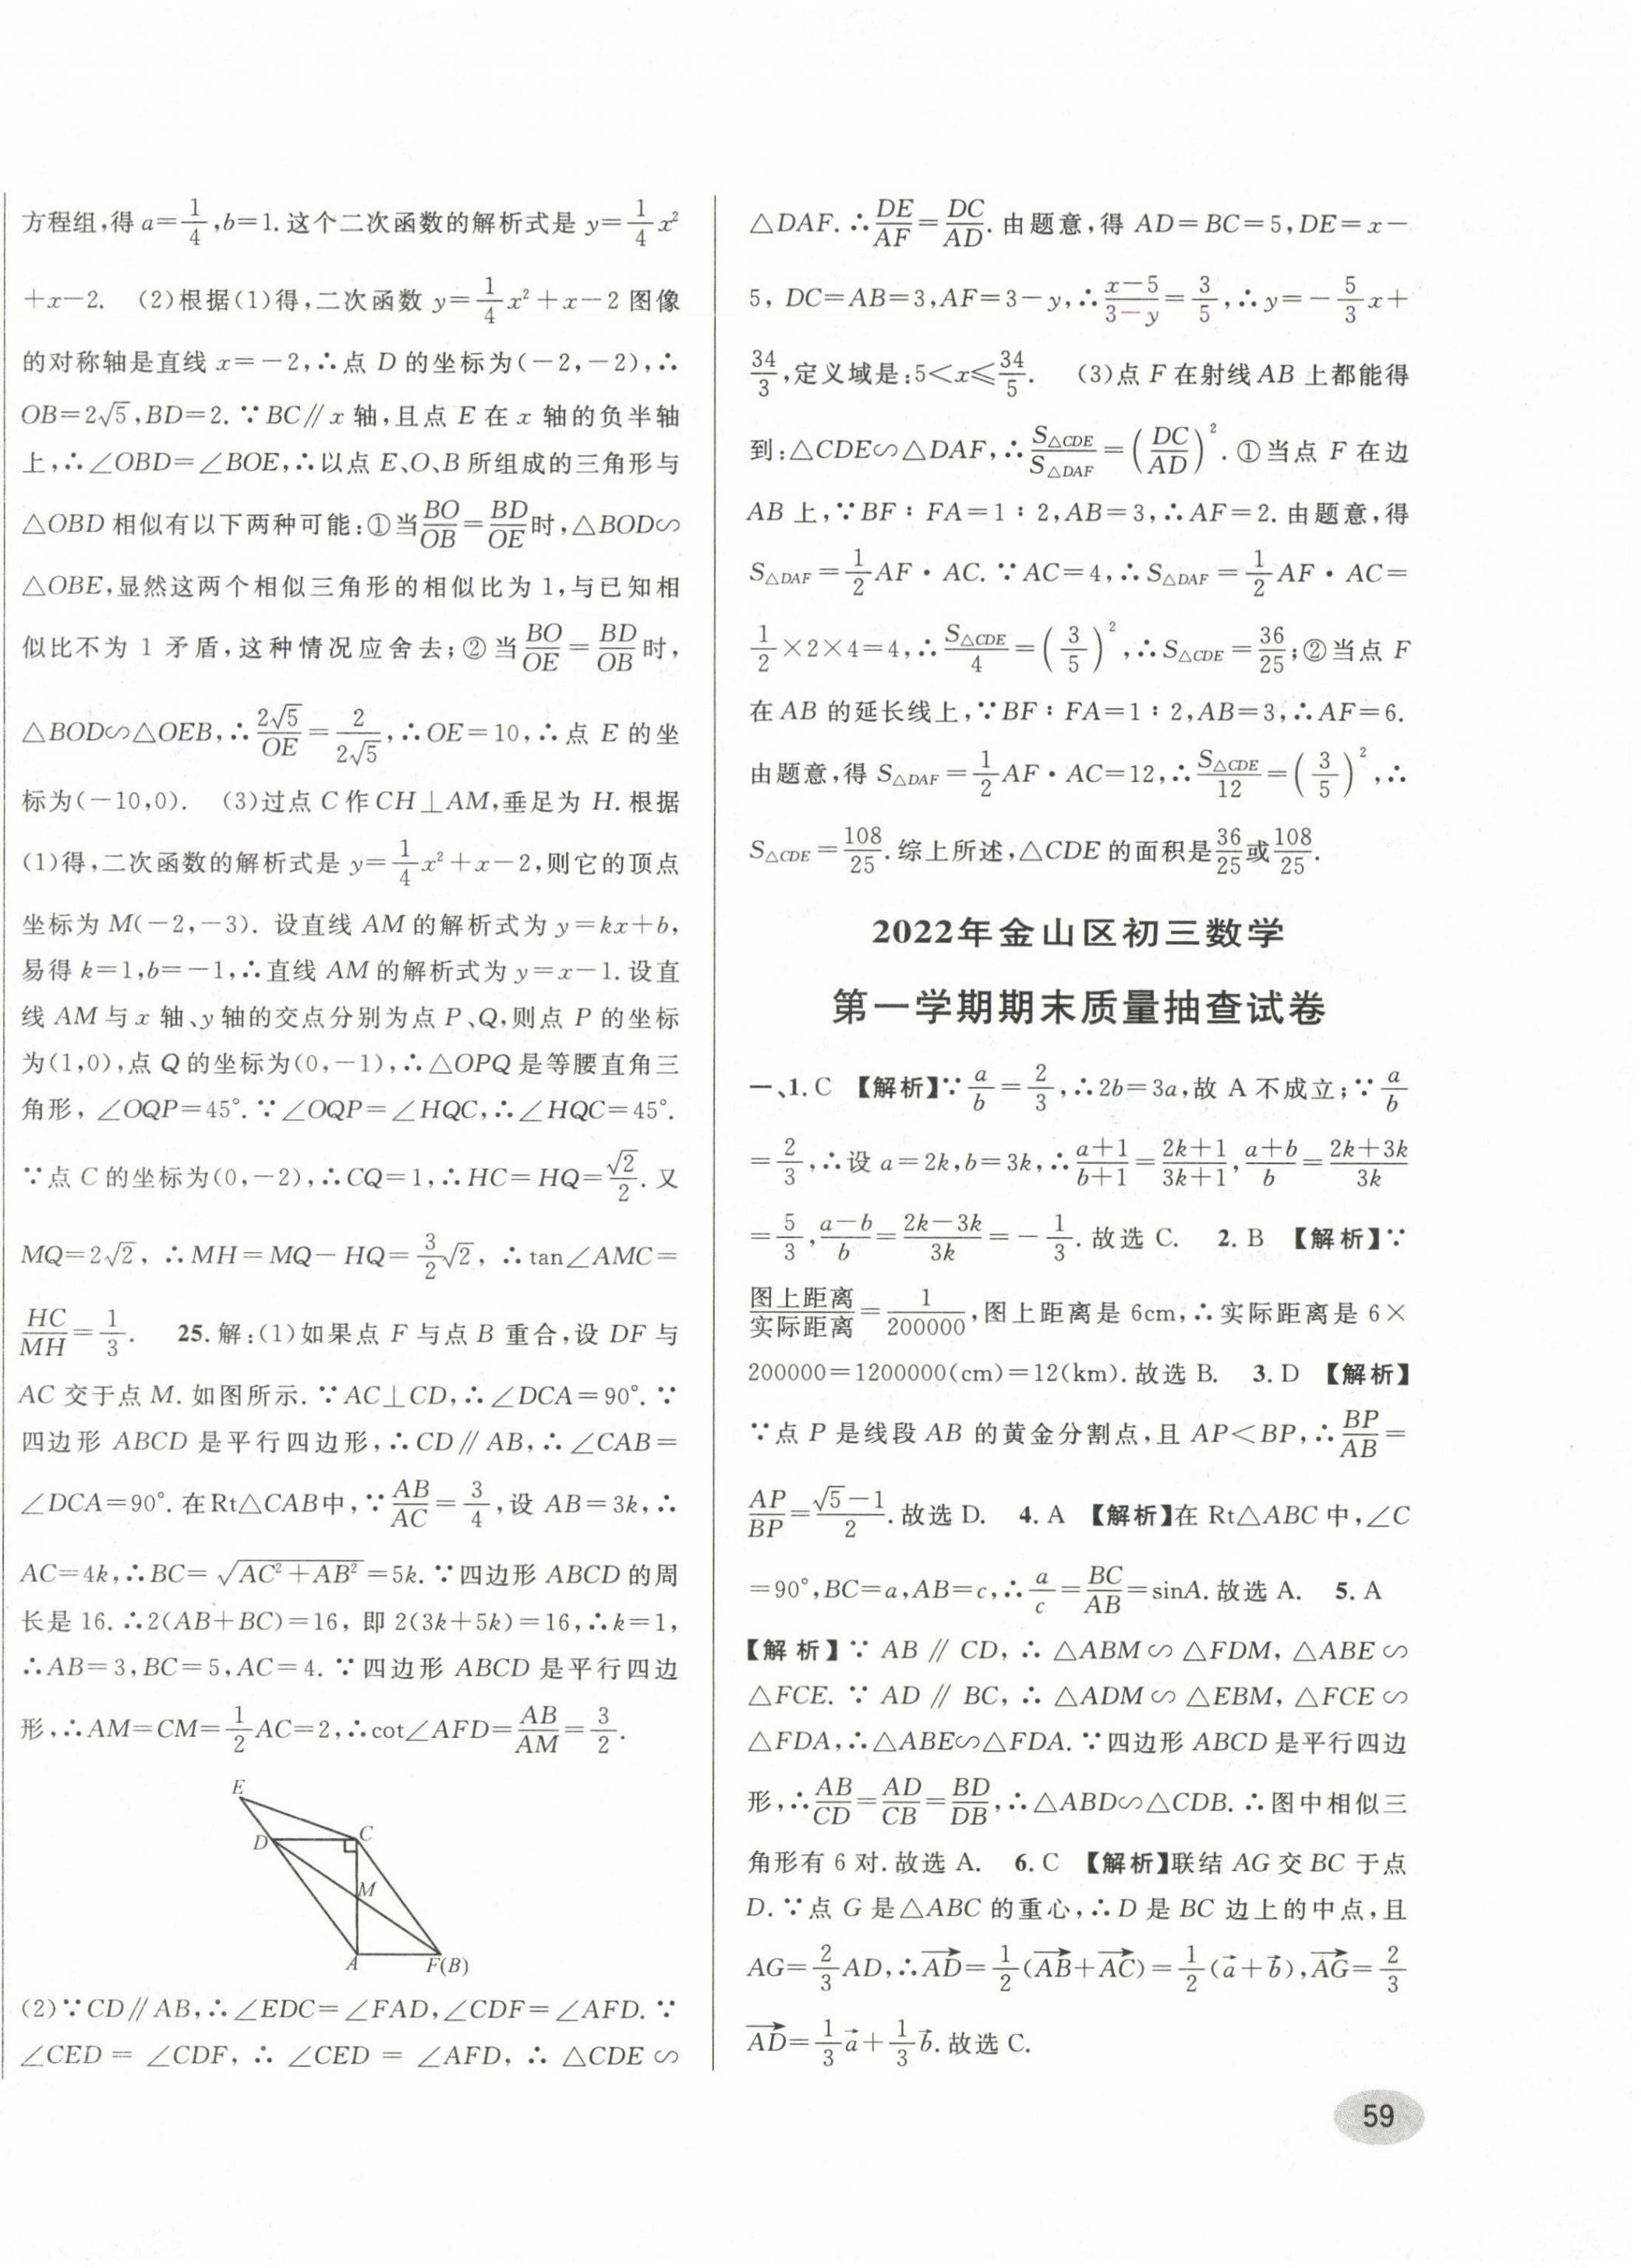 方程组,得 a=1/4,b=1.这个二次函数的解析式是 y=1/4x²
+x-2. (2)根据(1)得,二次函数 y=1/4x²+x-2 图像
的对称轴是直线 x=-2,∴点 D 的坐标为(-2,-2),∴
OB=2√5,BD=2.∵BC∥x 轴,且点 E 在 x 轴的负半轴
上,∴∠OBD=∠BOE,∴以点 E、O、B 所组成的三角形与
△OBD 相似有以下两种可能:①当BO/OB=BD/OE时,△BOD∽
△OBE,显然这两个相似三角形的相似比为 1,与已知相
似比不为 1 矛盾,这种情况应舍去;②当BO/OE=BD/OB时,
△BOD∽△OEB,∴2√5/OE=2/2√5,∴OE=10,∴点 E 的坐
标为(-10,0). (3)过点 C 作 CH⊥AM,垂足为 H.根据
(1)得,二次函数的解析式是 y=1/4x²+x-2,则它的顶点
坐标为 M(-2,-3). 设直线 AM 的解析式为 y=kx+b,
易得 k=1,b=-1,∴直线 AM 的解析式为 y=x-1.设直
线 AM 与 x 轴、y 轴的交点分别为点 P、Q,则点 P 的坐标
为(1,0),点 Q 的坐标为(0,-1),∴△OPQ 是等腰直角三
角形,∠OQP=45°.∵∠OQP=∠HQC,∴∠HQC=45°.
∵点 C 的坐标为(0,-2),∴CQ=1,∴HC=HQ=√2/2.又
MQ=2√2,∴MH=MQ-HQ=3/2√2,∴tan∠AMC=
HC/MH=1/3. 25.解:(1)如果点 F 与点 B 重合,设 DF 与
AC 交于点 M.如图所示.∵AC⊥CD,∴∠DCA=90°.∵
四边形 ABCD 是平行四边形,∴CD∥AB,∴∠CAB=
∠DCA=90°.在Rt△CAB中,∵AB/AC=3/4,设 AB=3k,∴
AC=4k,∴BC=√(AC²+AB²)=5k.∵四边形 ABCD 的周
长是 16.∴2(AB+BC)=16,即 2(3k+5k)=16,∴k=1,
∴AB=3,BC=5,AC=4.∵四边形 ABCD 是平行四边
形,∴AM=CM=1/2AC=2,∴cot∠AFD=AB/AM=3/2.
E
D
C
M
A
F(B)
(2)∵CD∥AB,∴∠EDC=∠FAD,∠CDF=∠AFD.∵
∠CED=∠CDF,∴∠CED=∠AFD,∴△CDE∽
△DAF.∴DE/AF=DC/AD.由题意,得 AD=BC=5,DE=x-
5,DC=AB=3,AF=3-y,∴(x-5)/(3-y)=3/5,∴y=-5/3x+
34/3,定义域是:5<x≤34/5. (3)点 F 在射线 AB 上都能得
到:△CDE∽△DAF,∴S△CDE/S△DAF=(DC/AD)².①当点 F 在边
AB 上,∵BF∶FA=1∶2,AB=3,∴AF=2.由题意,得
S△DAF=1/2AF·AC.∵AC=4,∴S△DAF=1/2AF·AC=
1/2×2×4=4,∴S△CDE/4=(3/5)²,∴S△CDE=36/25;②当点 F
在 AB 的延长线上,∵BF∶FA=1∶2,AB=3,∴AF=6.
由题意,得 S△DAF=1/2AF·AC=12,∴S△CDE/12=(3/5)²,∴
S△CDE=108/25.综上所述,△CDE 的面积是36/25或108/25.
2022年金山区初三数学
第一学期期末质量抽查试卷
一、1.C 【解析】∵a/b=2/3,∴2b=3a,故 A 不成立;∵a/b
=2/3,∴设 a=2k,b=3k,∴(a+1)/(b+1)=(2k+1)/(3k+1),(a+b)/b=(2k+3k)/3k
=5/3,(a-b)/b=(2k-3k)/3k=-1/3.故选 C. 2.B 【解析】∵
图上距离/实际距离=1/200000,图上距离是 6cm,∴实际距离是 6×
200000=1200000(cm)=12(km).故选 B. 3.D 【解析】
∵点 P 是线段 AB 的黄金分割点,且 AP<BP,∴BP/AB=
AP/BP=(√5-1)/2.故选 D. 4.A 【解析】在 Rt△ABC 中,∠C
=90°,BC=a,AB=c,∴a/c=BC/AB=sinA.故选 A. 5.A
【解析】∵AB∥CD,∴△ABM∽△FDM,△ABE∽
△FCE.∵AD∥BC,∴△ADM∽△EBM,△FCE∽
△FDA,∴△ABE∽△FDA.∵四边形 ABCD 是平行四边
形,∴AB/CD=AD/CB=BD/DB,∴△ABD∽△CDB.∴图中相似三
角形有 6 对.故选 A. 6.C 【解析】联结 AG 交 BC 于点
D.∵点 G 是△ABC 的重心,∴D 是 BC 边上的中点,且
AG=2/3AD,∴AD→=1/2(AB→+AC→)=1/2(a→+b→),AG→=2/3
AD→=1/3a→+1/3b→.故选 C.
59